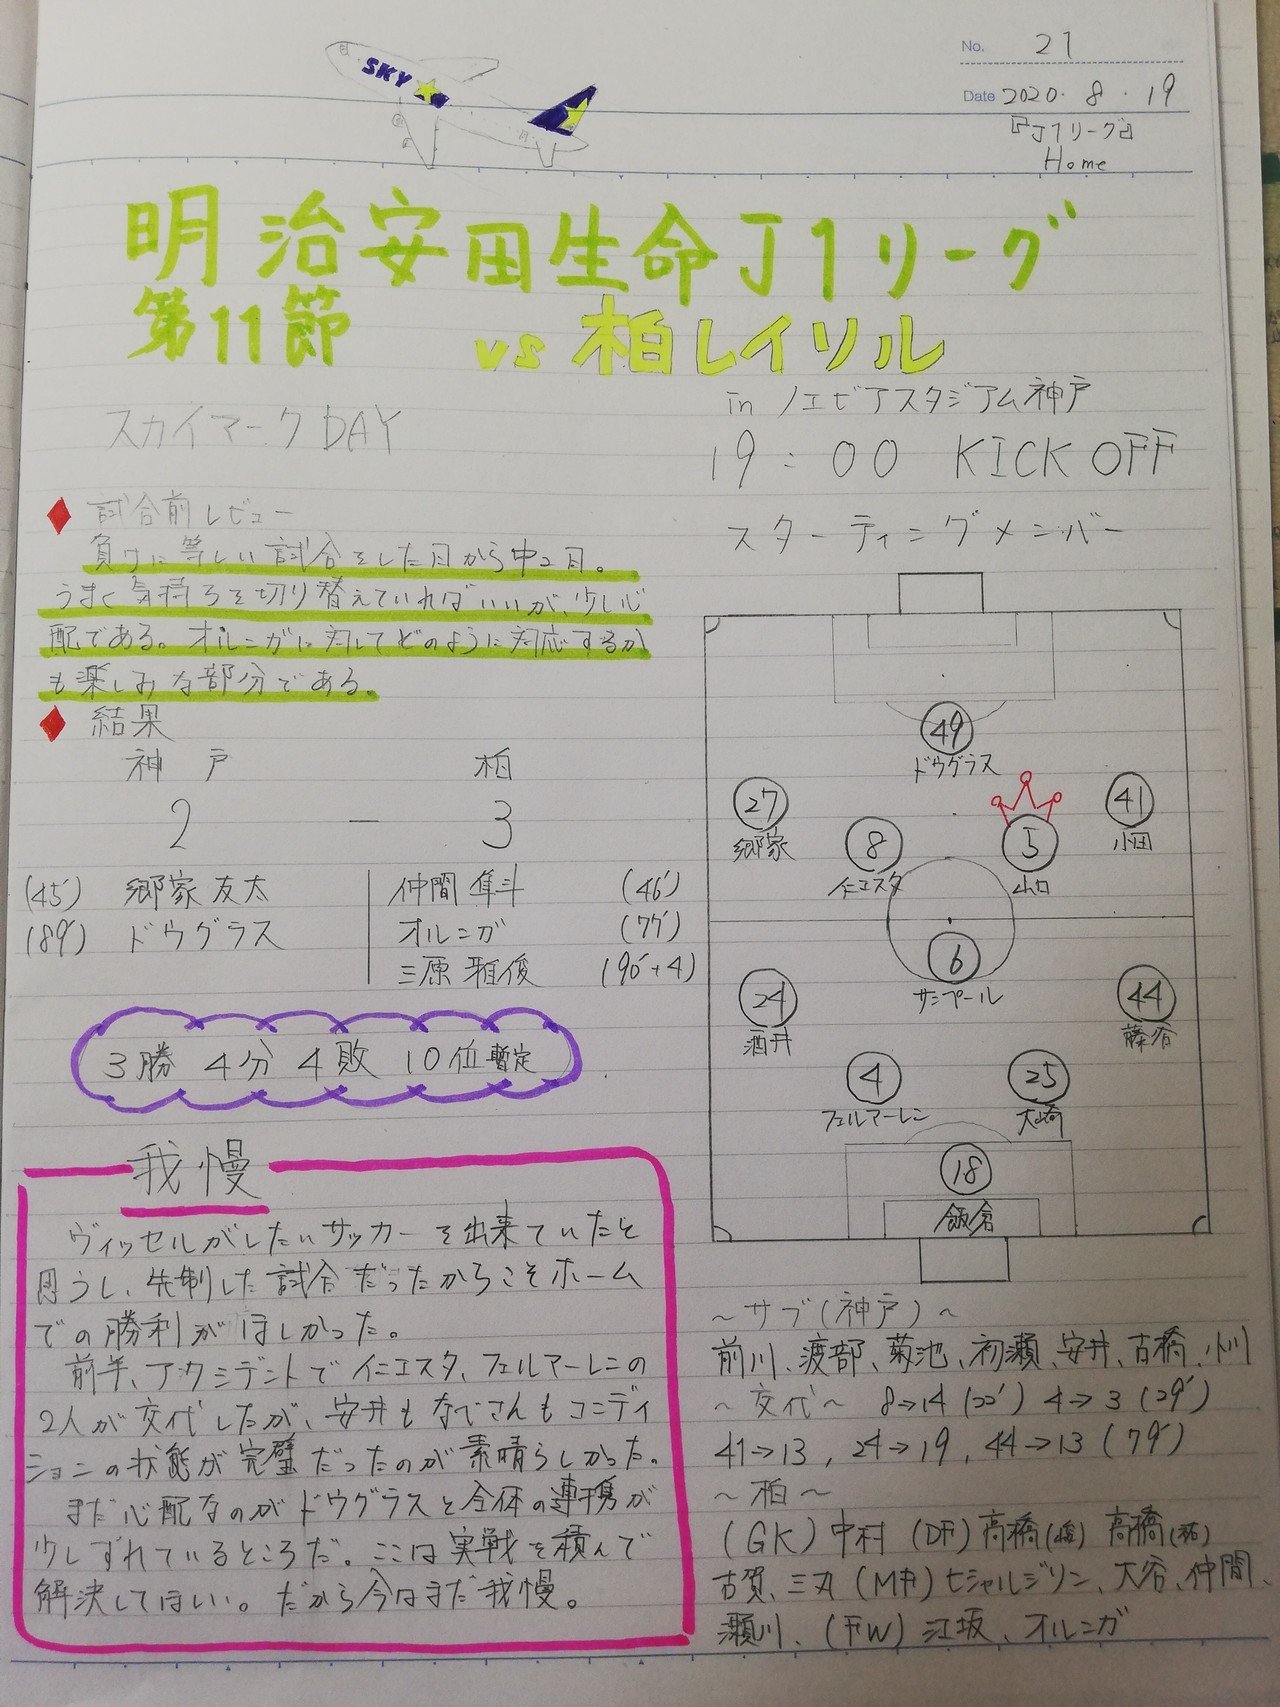 No. 21
Date 2020・8・19
『J1リーグ』
Home
SKY
明治安田生命J1リーグ
第11節 vs 柏レイソル
スカイマークDAY
in ノエビアスタジアム神戸
19:00 KICK OFF
スターティングメンバー
試合前レビュー
負けに等しい試合をした日から中2日。
うまく気持ちを切り替えていればいいが、少し心
配である。オルンガに対してどのように対応するか
も楽しみな部分である。
結果
神戸 柏
2 - 3
(45') 郷家友太
(89') ドウグラス
仲間隼斗 (46')
オルンガ (75')
三原雅俊 (90'+4)
3勝 4分 4敗 10位暫定
我慢
ヴィッセルがしたいサッカーを出来ていたと
思うし、先制した試合だったからこそホーム
での勝利がほしかった。
前半、アクシデントでイニエスタ、フェルマーレンの
2人が交代したが、安井も渡部さんもコンディ
ションの状態が完璧だったのが素晴らしかった。
まだ心配なのがドウグラスと全体の連携が
少しずれているところだ。ここは実戦を積んで
解決してほしい。だから今はまだ我慢。
49
ドウグラス
27
郷家
8
イニエスタ
5
山口
41
小田
6
サンペール
24
酒井
44
藤谷
4
フェルマーレン
25
大崎
18
飯倉
~サブ(神戸)~
前川、渡部、菊池、初瀬、安井、古橋、小川
~交代~ 8→14 (22') 4→3 (29')
41→13, 24→19, 44→13 (79')
~柏~
(GK) 中村 (DF) 高橋(峻) 高橋(祐)
古賀、三丸 (MF) ヒシャルジソン、大谷、仲間、
瀬川、(FW) 江坂、オルンガ